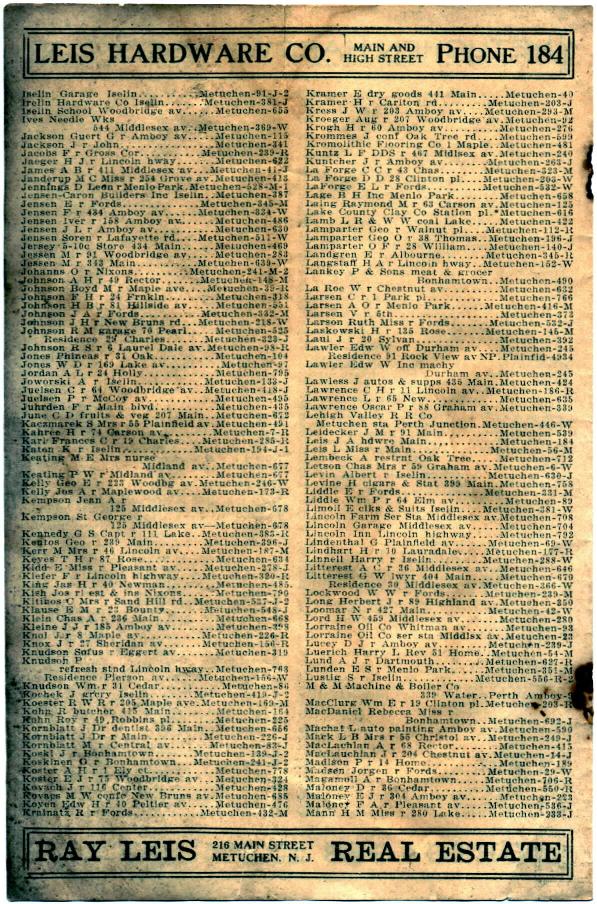 LEIS HARDWARE CO. MAIN AND HIGH STREET PHONE 184
Iselin Garage Iselin..........Metuchen-91-J-2
Irelin Hardware Co Iselin......Metuchen-381-J
Iselin School Woodbridge av....Metuchen-655
Ives Needle Wks
544 Middlesex av...Metuchen-269-W
Jackson Guert G r Amboy av....Metuchen-115
Jackson J r John..............Metuchen-341
Jacobs F r Gross Cor..........Metuchen-239-R
Jaeger H J r Lincoln hway......Metuchen-622
James A B r 411 Middlesex av...Metuchen-41-J
Jandurup M C Miss r 254 Grove av.Metuchen-613
Jennings D Leon r Menlo Park.Metuchen-528-M-1
Jensen-Caron Builders Inc Iselin.Metuchen-387
Jensen E r Fords..............Metuchen-345-M
Jensen F r 484 Amboy av.......Metuchen-334-W
Jensen Iver r 158 Amboy av.....Metuchen-486
Jensen J L r Amboy av.........Metuchen-630
Jensen Soren r Lafayette rd....Metuchen-511-W
Jersey 5-10c Store 434 Main....Metuchen-469
Jessen M r 91 Woodbridge av...Metuchen-283
Jessen M r 343 Main...........Metuchen-639-W
Johanns O r Nixons...........Metuchen-241-M-2
Johnson A H r 49 Rector.......Metuchen-148-M
Johnson Boyd M r Maple ave....Metuchen-39-M
Johnson F H r 24 Frnkln.......Metuchen-318
Johnson H B r 81 Hillside av....Metuchen-551
Johnson J A r Fords...........Metuchen-332-M
Johnson J H r New Bruns rd....Metuchen-218-W
Johnson R M garage 70 Pearl....Metuchen-525
Residence 29 Charles.........Metuchen-323-J
Johnson R S r 6 Laurel Dale av..Metuchen-395-R
Jones Phineas r 31 Oak.........Metuchen-104
Jones W D r 169 Lake..........Metuchen-97
Jordan A l r 24 Holly..........Metuchen-795
Joworski A r Iselin............Metuchen-133-J
Juelsen C r 64 Woodbridge av...Metuchen-418-J
Juelsen P r McCoy av..........Metuchen-495
Juhrden F r Main blvd..........Metuchen-435
June C D fruits & veg 207 Main..Metuchen-672
Kaczmarek S Mrs r 55 Plainfield av.Metuchen-491
Kahree H r 74 Carson av........Metuchen-7-R
Karl Frances C r 19 Charles....Metuchen-285-R
Katon K M Iselin..............Metuchen-194-J-1
Keating M E Mrs nurse
Midland av...Metuchen-677
Keating P W r Midland av......Metuchen-677
Kelly Geo E r 223 Woodbg av...Metuchen-246-W
Kelly Jos A r Maplewood av....Metuchen-173-R
Kempson Jean A r
125 Middlesex av...Metuchen-678
Kempson St George r
125 Middlesex av—Metuchen-678
Kennedy G S Capt r 111 Lake...Metuchen-383-R
Kentos Geo r 239 Main.........Metuchen-396-J
Kerr M Mrs r 46 Lincoln av.....Metuchen-187-M
Keyes T H r 87 Rose...........Metuchen-634
Kidd E Miss r Pleasant av......Metuchen-278-J
Kiefer F r Lincoln highway.....Metuchen-320-R
King Jas H r 40 Newman.......Metuchen-185
Kish Jos rl est & ins Nixons.....Metuchen-790
C Mrs r Sand Hill rd..Metuchen-527-J-2
Klause E M r 23 Hounty........Metuchen-548-J
Klein Chas A r 236 Main........Metuchen-668
Kleine J J r 185 Amboy av......Metuchen-398
Knol J r 8 Maple av............Metuchen-226-R
Knox J r 27 Sheridan av........Metuchen-156-R
Knudson Sofus r Eggert av......Metuchen-319
Knudson P
refresh stnd Lincoln hway..Metuchen-763
Residence Pierson av........Metuchen-156-W
Knudson Wm r 31 Cedar........Metuchen-86
Kochek J grcry Iselin..........Metuchen-419-J-2
Koester R W R r 205 Maple ave.Metuchen-169-M
Kohn R butcher 415 Main......Metuchen-164
Kohn Roy r 49 Robbins pl......Metuchen-225
Kornblatt J Dr dentist 396 Main..Metuchen-666
Kornblatt J Dr r Main..........Metuchen-226-J
Kornblatt M r Central av........Metuchen-83-J
Koski J r Bonhamtown.........Metuchen-139-J-2
Koskinen G r Bonhamtown.....Metuchen-241-J-2
Koster A H r Ely ct............Metuchen-778
Koster E J r 77 Woodbridge av..Metuchen-324
Kovach J r 116 Center..........Metuchen-428
Kovacs M W confe New Bruns av.Metuchen-685
Koyen Edw H r 40 Peltier av....Metuchen-476
Krainatz R r Fords............Metuchen-432-M
Kramer E dry goods 441 Main....Metuchen-40
Kramer H r Carlton rd.........Metuchen-203-J
Kress J W r 203 Amboy av.....Metuchen-293-M
Kroeger Aug r 207 Woodbridge av.Metuchen-92
Krogh H r 60 Amboy av........Metuchen-276
Krommes J conf Oak Tree rd....Metuchen-599
Kromolithic Flooring Co 1 Maple..Metuchen-481
Kuntz L F DDS r 467 Midlsex av..Metuchen-240
Kuntcher J r Amboy av........Metuchen-263-J
La Forge C C r 43 Chas........Metuchen-323-M
La Forge D D 28 Clinton pl....Metuchen-205-W
LaForge E L r Fords..........Metuchen-532-W
Lage H H Inc Menlo Park......Metuchen-658
Laing Raymond M r 63 Carson av.Metuchen-125
Lake County Clay Co Station pl.*Metuchen-616
Lamb L R & W W coal Lake.....Metuchen-422
Lamparter Geo r Walnut pl.....Metuchen-112-R
Lamparter Geo O r 38 Thomas..Metuchen-196-J
Lamparter O P r 28 William....Metuchen-140-J
Landgren E r Albourne........Metuchen-345-R
Langstaff H A r Lincoln hway..Metuchen-152-W
Lankey P & Sons meat & grocer
Bonhamtown.....Metuchen-490
La Roe W r Chestnut av.......Metuchen-632
Larsen C r 1 Park pl...........Metuchen-766
Larsen A O r Menlo Park......Metuchen-416-M
Larsen V r 5th................Metuchen-373
Larson Ruth Miss r Fords......Metuchen-532-J
Laskowski H r 135 Rose.......Metuchen-145-M
Laul J r 20 Sylvan............Metuchen-392
Lawler Edw W off Durham av...Metuchen-245
Residence 91 Rock View av NP.Plainfild-4934
Lawler Edw W Inc machy
Durham av...Metuchen-245
Lawless J autos & supps 435 Main.Metuchen-424
Lawrence C H r 11 Lincoln av..Metuchen-186-R
Lawrence L r 65 New..........Metuchen-635
Lawrence Oscar P r 88 Graham av.Metuchen-339
Lehigh Valley R R Co
Metuchen sta Perth Junction.Metuchen-446-W
Leidecker J M r 91 Main......Metuchen-539
Leis J A hdwre Main..........Metuchen-184
Leis L Miss r Main............Metuchen-56-M
Lembeck A restrnt Oak Tree....Metuchen-712
Letson Chas Mrs r 59 Graham av.Metuchen-6-W
Levin Albert r Iselin..........Metuchen-631-J
Levine H cigars & Stat 399 Main.Metuchen-758
Liddle E r Fords..............Metuchen-330-J
Liddle Wm P r 64 Elm av.......Metuchen-89
Limoli E clks & Suits Iselin....Metuchen-381-W
Lincoln Farm Ser Sta Middlesex av.Metuchen-708
Lincoln Garage Middlesex av....Metuchen-704
Lincoln Inn Lincoln highway....Metuchen-79
Lindenthal G Plainfield av.....Metuchen-69-W
Lindhart H r 10 Lauradale.....Metuchen-177-R
Linnell Harry r Iselin.........Metuchen-288-W
Litterest A C r 36 Middlesex av..Metuchen-646
Litterest G W lwyr 404 Main....Metuchen-670
Residence 30 Middlesex av...Metuchen-366-W
Lockwood W W r Fords........Metuchen-39-M
Long Herbert J r 89 Highland av.Metuchen-350
Loomar N r 427 Main..........Metuchen-42-W
Lord H W 459 Middlesex av....Metuchen-280
Lorraine Oil Co Whitman av....Metuchen-93
Lorraine Oil Co ser sta Middlsx av.Metuchen-23
Lucey D J r Amboy av.........Metuchen-239-J
Luerich Harry L Rev 51 Home..Metuchen-54-M
Lund A J r Dartmouth.........Metuchen-627-R
Lunden E S r Menlo Park......Metuchen-351-M
Lustig S r Iselin..............Metuchen-556-R-2
M & M Machine & Boiler Co
339 Water..Perth Amboy-9
MacClurg Wm E r 19 Clinton pl.Metuchen-293-R
MacDaniel Rebecca Miss r
Bonhamtown..Metuchen-692-J
Machat L auto painting Amboy av.Metuchen-590
Mack L B Mrs r 55 Christol av..Metuchen-249-J
MacLachlan A r 68 Rector.....Metuchen-415
MacLauchlan J r 204 Chestnut av.Metuchen-14-J
Madison P r 14 Home.........Metuchen-189
Madsen Jorgen r Fords........Metuchen-29-W
Magamoll A r Bonhamtown....Metuchen-706-R
Maloney D r 36 Cedar.........Metuchen-550-R
Maloney E J r 304 Amboy av...Metuchen-223
Maloney F A r Pleasant av.....Metuchen-536-J
Mann H M Miss r 280 Lake.....Metuchen-233-J
RAY LEIS 216 MAIN STREET METUCHEN, N. J. REAL ESTATE